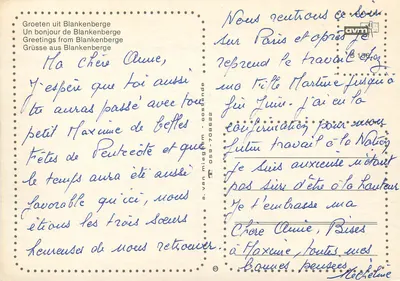 Groeten uit Blankenberge
Un bonjour de Blankenberge
Greetings from Blankenberge
Grüsse aus Blankenberge
Ma chère Annie,
J'espère que toi aussi
tu auras passé avec ton
petit Maxime de belles
Fêtes de Pentecôte et que
le temps aura été aussi
favorable qu'ici, nous
étions les trois sœurs
heureuses de nous retrouver.
Nous rentrons ce soir
sur Paris et après je
reprend le travail chez
ma Fille Martine jusqu'à
fin Juin. J'ai eu la
confirmation pour mon
futur travail à la Nation
Je suis anxieuse n'étant
pas sûre d'être à la hauteur
Je t'embrasse ma
Chère Annie, Bises
à Maxime, toutes mes
bonnes pensées
Micheline
avm